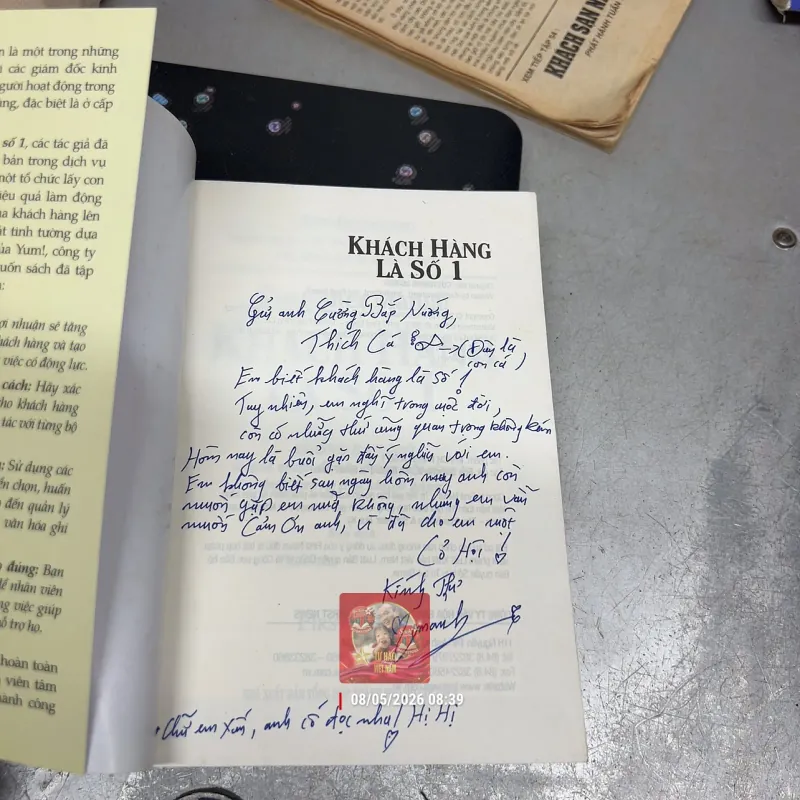 n là một trong những
i các giám đốc kinh
gười hoạt động trong
ng, đặc biệt là ở cấp
số 1, các tác giả đã
bản trong dịch vụ
một tổ chức lấy con
iệu quả làm động
ủa khách hàng lên
ật tình tường dựa
ủa Yum!, công ty
uốn sách đã tập
n:
ợi nhuận sẽ tăng
hách hàng và tạo
việc có động lực.
cách: Hãy xác
ho khách hàng
tác với từng bộ
g: Sử dụng các
ển chọn, huấn
đến quản lý
văn hóa ghi
o đúng: Bạn
để nhân viên
ng việc giúp
ỗ trợ họ.
hoàn toàn
viên tâm
hành công
XEM TIẾP TẬP 54:
KHÁCH SẠN N
PHÁT HÀNH TUẦN
KHÁCH HÀNG
LÀ SỐ 1
Gửi anh Cường Bắp Nướng,
Thích Cá → (Đây là
con cá)
Em biết khách hàng là số 1
Tuy nhiên, em nghĩ trong cuộc đời,
còn có những thứ cũng quan trọng không kém
Hôm nay là buổi gặp đầy ý nghĩa với em.
Em không biết sau ngày hôm nay anh còn
muốn gặp em nữa không, nhưng em vẫn
muốn Cảm Ơn anh, vì đã cho em một
Cơ Hội!
Kính Thư
TỰ HÀO
VIỆT NAM
08/05/2026 08:39
Chữ em xấu, anh cố đọc nha! Hị Hị